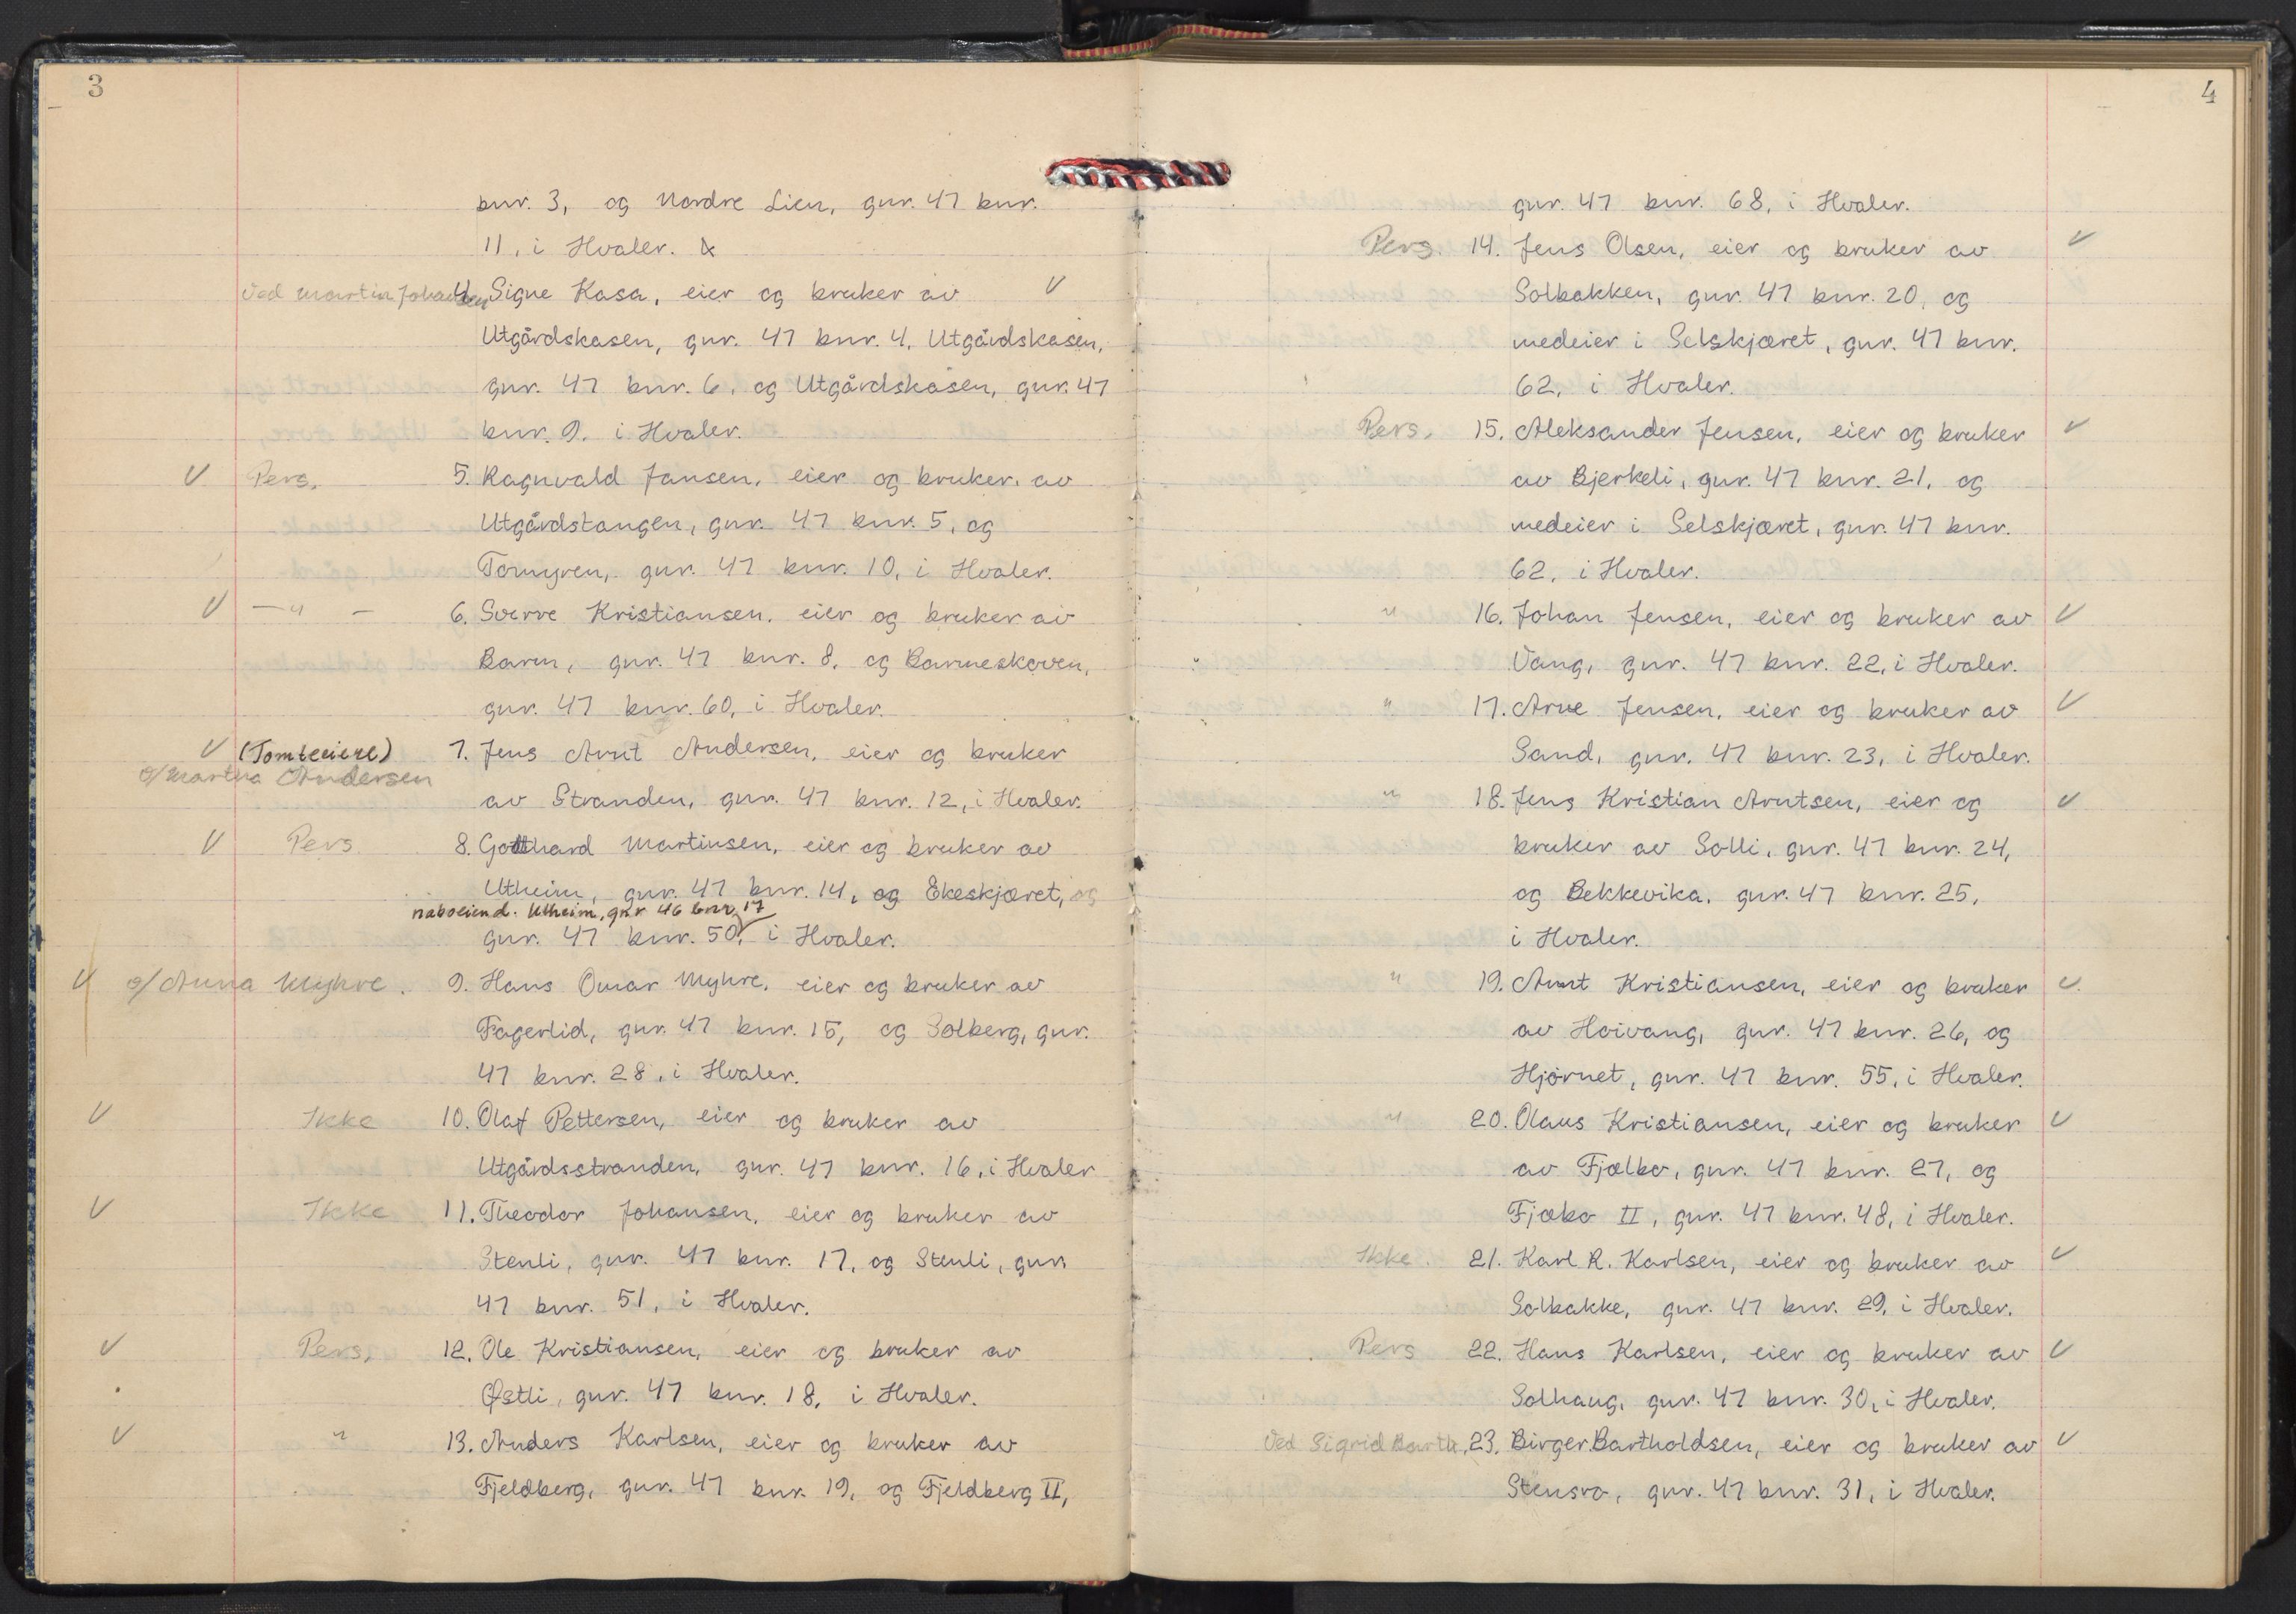 3
bnr. 3, og Nordre Lien, gnr. 47 bnr.
11, i Hvaler.
Ved Martin Johansen 4. Signe Kasa, eier og bruker av V
Utgårdskasen, gnr. 47 bnr. 4, Utgårdskasen,
gnr. 47 bnr. 6, og Utgårdskasen, gnr. 47
bnr. 9, i Hvaler.
V Pers. 5. Ragnvald Jansen, eier og bruker av
Utgårdstangen, gnr. 47 bnr. 5, og
Tomyren, gnr. 47 bnr. 10, i Hvaler.
V — " — 6. Sverre Kristiansen, eier og bruker av
Barm, gnr. 47 bnr. 8, og Barmeskoven,
gnr. 47 bnr. 60, i Hvaler.
V (Tomteeiere) 7. Jens Arnt Andersen, eier og bruker
v/ Martha Andersen
av Stranden, gnr. 47 bnr. 12, i Hvaler.
V Pers. 8. Gotthard Martinsen, eier og bruker av
Utheim, gnr. 47 bnr. 14, og Ekeskjæret, og
naboeiend. Utheim, gnr 46 bnr. 17
gnr. 47 bnr. 50, i Hvaler.
V v/ Anna Myhre. 9. Hans Omar Myhre, eier og bruker av
Fagerlid, gnr. 47 bnr. 15, og Solberg, gnr.
47 bnr. 28, i Hvaler.
V Ikke 10. Olaf Pettersen, eier og bruker av
Utgårdsstranden, gnr. 47 bnr. 16, i Hvaler
V Ikke 11. Theodor Johansen, eier og bruker av
Stenli, gnr. 47 bnr. 17, og Stenli, gnr.
47 bnr. 51, i Hvaler.
V Pers. 12. Ole Kristiansen, eier og bruker av
Østli, gnr. 47 bnr. 18, i Hvaler.
V " 13. Anders Karlsen, eier og bruker av
Fjeldberg, gnr. 47 bnr. 19, og Fjeldberg II,
4
gnr. 47 bnr. 68, i Hvaler.
Pers. 14. Jens Olsen, eier og bruker av V
Solbakken, gnr. 47 bnr. 20, og
medeier i Selskjæret, gnr. 47 bnr.
62, i Hvaler.
Pers. 15. Aleksander Jensen, eier og bruker V
av Bjerkeli, gnr. 47 bnr. 21, og
medeier i Selskjæret, gnr. 47 bnr.
62, i Hvaler.
" 16. Johan Jensen, eier og bruker av V
Vang, gnr. 47 bnr. 22, i Hvaler.
" 17. Arne Jensen, eier og bruker av V
Sand, gnr. 47 bnr. 23, i Hvaler.
" 18. Jens Kristian Arntsen, eier og V
bruker av Solli, gnr. 47 bnr. 24,
og Bekkevika, gnr. 47 bnr. 25,
i Hvaler.
" 19. Arnt Kristiansen, eier og bruker V
av Hoivang, gnr. 47 bnr. 26, og
Hjørnet, gnr. 47 bnr. 55, i Hvaler.
" 20. Olaus Kristiansen, eier og bruker V
av Fjælbo, gnr. 47 bnr. 27, og
Fjæbo II, gnr. 47 bnr. 48, i Hvaler.
Ikke. 21. Karl R. Karlsen, eier og bruker av V
Solbakke, gnr. 47 bnr. 29, i Hvaler.
Pers 22. Hans Karlsen, eier og bruker av V
Solhaug, gnr. 47 bnr. 30, i Hvaler.
Ved Sigrid Barth. 23. Birger Bartholdsen, eier og bruker av V
Stensro, gnr. 47 bnr. 31, i Hvaler.